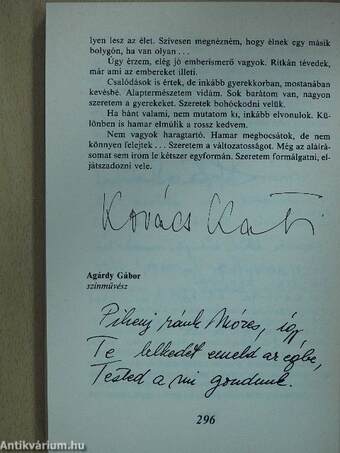 lyen lesz az élet. Szívesen megnézném, hogy élnek egy másik
bolygón, ha van olyan . . .
Úgy érzem, elég jó emberismerő vagyok. Ritkán tévedek,
már ami az embereket illeti.
Csalódások is értek, de inkább gyerekkorban, mostanában
kevésbé. Alaptermészetem vidám. Sok barátom van, nagyon
szeretem a gyerekeket. Szeretek bohóckodni velük.
Ha bánt valami, nem mutatom ki, inkább elvonulok. Kü-
lönben is hamar elmúlik a rossz kedvem.
Nem vagyok haragtartó. Hamar megbocsátok, de nem
könnyen felejtek . . . Szeretem a változatosságot. Még az aláírá-
somat sem írom le kétszer egyformán. Szeretem formálgatni, el-
játszadozni vele.
Kovács Kati
Agárdy Gábor
színművész
Pihenj ránk Móres, így
Te lelkedet emeld az égbe,
Tested a mi gondunk.
296
Antikvárium.hu